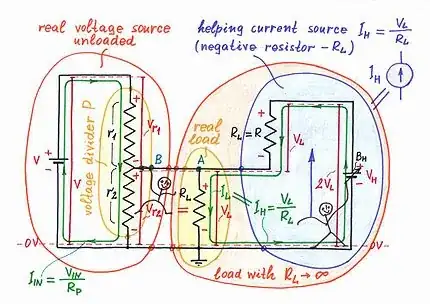 real voltage source
unloaded
helping current source I_H = V_L / R_L
(negative resistor - R_L)
I_H
voltage divider P
r1
r2
V_r1
V_r2
V
V
B
real
load
A
R_L
I_L
V_L
I_H = V_L / R_L
R_L = R
V_L
2V_L
B_H
V_H
0V
0V
I_IN = V_IN / R_P
load with R_L → ∞